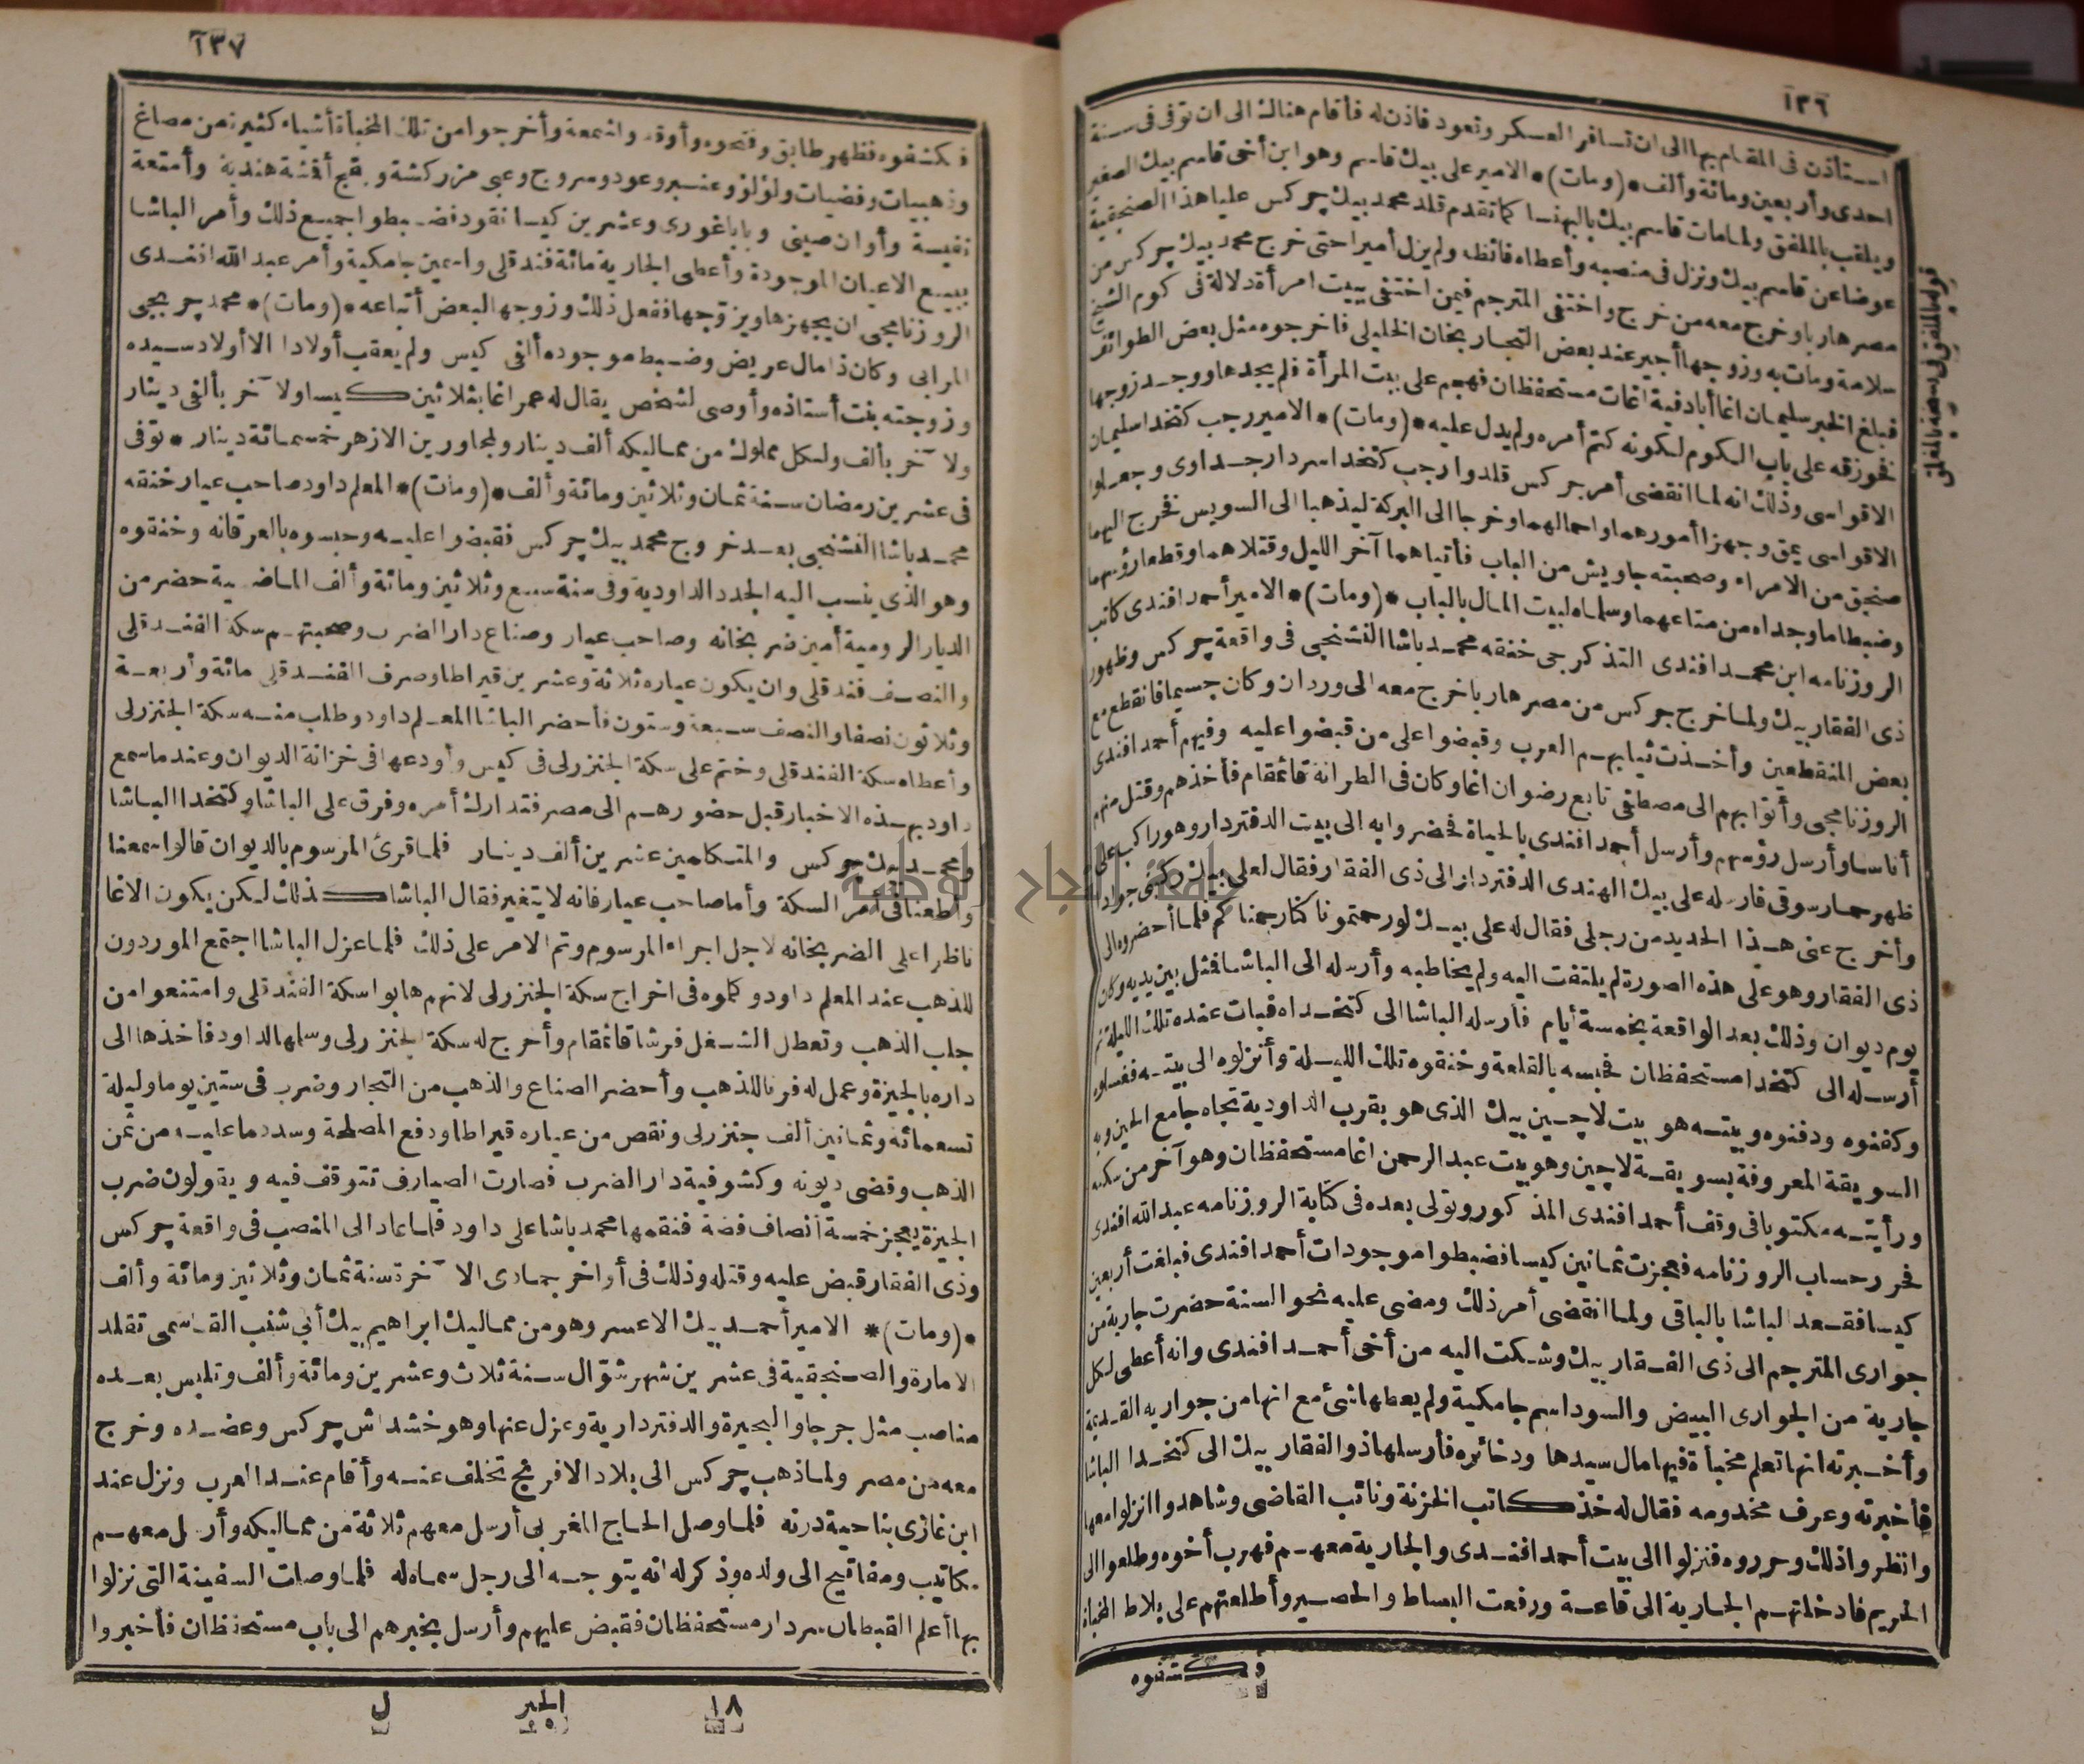 ١٣٦
استأذن فى المقام بها الى ان تسافر العسكر وتعود فاذن له فأقام هناك الى ان توفى فى سنة
احدى وأربعين ومائة وألف * (ومات) * الامير على بيك قاسم وهو ابن أخى قاسم بيك الصغير
ويلقب بالملفق ولمامات قاسم بيك بالبهنسا كما تقدم قلد محمد بيك چركس عليا هذا الصنجقية
عوضا عن قاسم بيك ونزل فى منصبه وأعطاه فائظه ولم يزل أميرا حتى خرج محمد بيك چركس من
مصر هاربا وخرج معه من خرج واختفى المترجم فيمن اختفى ببيت امرأة دلالة فى كوم الشيخ
سلامة ومات به وزوجها أجير عند بعض التجار بخان الخليلى فاخرجوه مثل بعض الطوائف
فبلغ الخبر سليمان اغا أبادفية اغات مستحفظان فهجم على بيت المرأة فلم يجدها ووجد زوجها
نخوزقه على باب الكوم لكونه كتم أمره ولم يدل عليه * (ومات) * الامير رجب كتخدا سليمان
الاقواسى وذلك انه لما انقضى أمر جركس قلدوا رجب كتخدا سردار جداوى وجعلوا
الاقواسى يمق وجهزا أمورهما واحمالهما وخرجا الى البركة ليذهبا الى السويس فخرج اليهما
صنجق من الامراء وصحبته جاويش من الباب فأتياهما آخر الليل وقتلاهما وقطعا رؤسهما
وضبطا ما وجداه من متاعهما وسلماه لبيت المال بالباب * (ومات) * الامير أحمد افندى كاتب
الروزنامه ابن محمد افندى التذكرجى خنقه محمد باشا النشنجى فى واقعة چركس وظهور
ذى الفقار بيك ولما خرج جركس من مصر هاربا خرج معه الى وردان وكان جسيما فانقطع مع
بعض المنقطعين وأخذت ثيابهم العرب وقبضوا على من قبضوا عليه وفيهم أحمد افندى
الروزنامجى وأتوا بهم الى مصطفى تابع رضوان اغا وكان فى الطرانة قائمقام فأخذهم وقتل منهم
أناسا وأرسل رؤسهم وأرسل أحمد افندى بالحياة فحضروا به الى بيت الدفتردار وهو راكب على
ظهر حمار سوقى فارسله على بيك الهندى الدفتردار الى ذى الفقار فقال لعلى بيك ركبنى جوادا
وأخرج عنى هذا الحديد من رجلى فقال له على بيك لو رحمتونا كنا رحمناكم فلما أحضروه الى
ذى الفقار وهو على هذه الصورة لم يلتفت اليه ولم يخاطبه وأرسله الى الباشا فمثل بين يديه وكان
يوم ديوان وذلك بعد الواقعة بخمسة أيام فأرسله الباشا الى كتخداه فبات عنده تلك الليلة ثم
أرسله الى كتخدا مستحفظان فحبسه بالقلعة وخنقوه تلك الليلة وأنزلوه الى بيته فغسلوه
وكفنوه ودفنوه وبيته هو بيت لاچين بيك الذى هو بقرب الداودية تجاه جامع الحين وبه
السويقة المعروفة بسويقة لاچين وهو بيت عبد الرحمن اغا مستحفظان وهو آخر من سكنه
ورأيته مكتوبا فى وقف أحمد افندى المذكور وتولى بعده فى كتابة الروزنامه عبد الله افندى
فحرر حساب الروزنامه فعجزت ثمانين كيسا فضبطوا موجودات أحمد افندى فبلغت أربعين
كيسا فقعد الباشا بالباقى ولما انقضى أمر ذلك ومضى عليه نحو السنة حضرت جارية من
جوارى المترجم الى ذى الفقار بيك وشكت اليه من أخى أحمد افندى وانه أعطى لكل
جارية من الجوارى البيض والسود اسم جامكية ولم يعطها شئ مع انها من جواريه القديمة
وأخبرته انها تعلم مخبأة فيها مال سيدها وذخائره فأرسلها ذو الفقار بيك الى كتخدا الباشا
فأخبرته وعرف مخدومه فقال له خذ كاتب الخزنة ونائب القاضى وشاهدوا انزلوا معها
وانظروا ذلك وحرروه فنزلوا الى بيت أحمد افندى والجارية معهم فهرب أخوه وطلعوا الى
الحريم فادخلتهم الجارية الى قاعة ورفعت البساط والحصير وأطلعتهم على بلاط المخبأة
فكشفوه
١٣٧
فكشفوه فظهر طابق وفتحوه وأوقدوا شمعة وأخرجوا من تلك المخبأة أشياء كثيرة من مصاغ
وذهبيات وفضيات ولؤلؤ وعنبر وعود وسروج وعبى مزركشة وبقج أقشة هندية وأمتعة
نفيسة وأوان صينى وباباغورى وعشرين كيسا نقود فضبطوا جميع ذلك وأمر الباشا
ببيع الاعيان الموجودة وأعطى الجارية مائة فندقلى واسمين جامكية وأمر عبد الله افندى
الروزنامجى ان يجهزها ويزوجها ففعل ذلك وزوجها لبعض أتباعه * (ومات) * محمد چربجى
المرابى وكان ذا مال عريض وضبط موجوده ألفى كيس ولم يعقب أولادا الا أولاد سيده
وزوجته بنت أستاذه وأوصى لشخص يقال له عمر اغا بثلاثين كيسا ولآخر بألفى دينار
ولآخر بألف ولكل مملوك من مماليكه ألف دينار ولمجاورين الازهر خمسمائة دينار * توفى
فى عشرين رمضان سنة ثمان وثلاثين ومائة وألف * (ومات) * المعلم داود صاحب عيار خنقه
محمد باشا النشنجى بعد خروج محمد بيك چركس فقبضوا عليه وحبسوه بالعرقانه وخنقوه
وهو الذى ينسب اليه الجدد الداودية وفى سنة سبع وثلاثين ومائة وألف الماضية حضر من
الديار الرومية أمين ضربخانه وصاحب عيار وصناع دار الضرب وصحبتهم سكة الفندقلى
والنصف فندقلى وان يكون عياره ثلاثة وعشرين قيراطا وصرف الفندقلى مائة وأربعة
وثلاثون نصفا والنصف سبعة وستون فأحضر الباشا المعلم داود وطلب منه سكة الجنزرلى
وأعطاه سكة الفندقلى وختم على سكة الجنزرلى فى كيس وأودعها فى خزانة الديوان وعندما سمع
داود بهذه الاخبار قبل حضورهم الى مصر فتدارك أمره وفرق على الباشا وكتخدا الباشا
ومحمد بيك چركس والمتكلمين عشرين ألف دينار فلما قرئ المرسوم بالديوان قالوا سمعنا
وأطعنا فى أمر السكة وأما صاحب عيار فانه لا يتغير فقال الباشا كذلك لكن يكون الاغا
ناظرا على الضربخانه لاجل اجراء المرسوم وتم الامر على ذلك فلما عزل الباشا اجتمع الموردون
للذهب عند المعلم داود وكلموه فى اخراج سكة الجنزرلى لانهم هابوا سكة الفندقلى وامتنعوا من
جلب الذهب وتعطل الشغل فرشا قائمقام وأخرج له سكة الجنزرلى وسلمها لداود فأخذها الى
داره بالجيزة وعمل له فرنا للذهب وأحضر الصناع والذهب من التجار وضرب فى ستين يوما وليلة
تسعمائة وثمانين ألف جنزرلى ونقص من عياره قيراطا ودفع المصلحة وسدد ما عليه من ثمن
الذهب وقضى ديونه وكشوفية دار الضرب فصارت الصيارف تتوقف فيه ويقولون ضرب
الجيزة يعجز خمسة أنصاف فضة فنقمها محمد باشا على داود فلما عاد الى المنصب فى واقعة چركس
وذى الفقار قبض عليه وقتله وذلك فى أواخر جمادى الآخرة سنة ثمان وثلاثين ومائة وألف
* (ومات) * الامير أحمد بيك الاعسر وهو من مماليك ابراهيم بيك أبى شنب القاسمى تقلد
الامارة والصنجقية فى عشرين شهر شوّال سنة ثلاث وعشرين ومائة وألف وتلبس بعده
مناصب مثل جرجا والبحيرة والدفتردارية وعزل عنها وهو خشداش چركس وعضده وخرج
معه من مصر ولما ذهب چركس الى بلاد الافرنج تخلف عنه وأقام عند العرب ونزل عند
ابن غازى بناحية درنه فلما وصل الحاج المغربى أرسل معهم ثلاثة من مماليكه وأرسل معهم
مكاتيب ومفاتيح الى ولده وذكر له انه يتوجه الى رجل سماه له فلما وصلت السفينة التى نزلوا
بها أعلم القبطان سردار مستحفظان فقبض عليهم وأرسل يخبرهم الى باب مستحفظان فأخبروا
١٨ الجبر ل
جامعة النجاح الوطنية